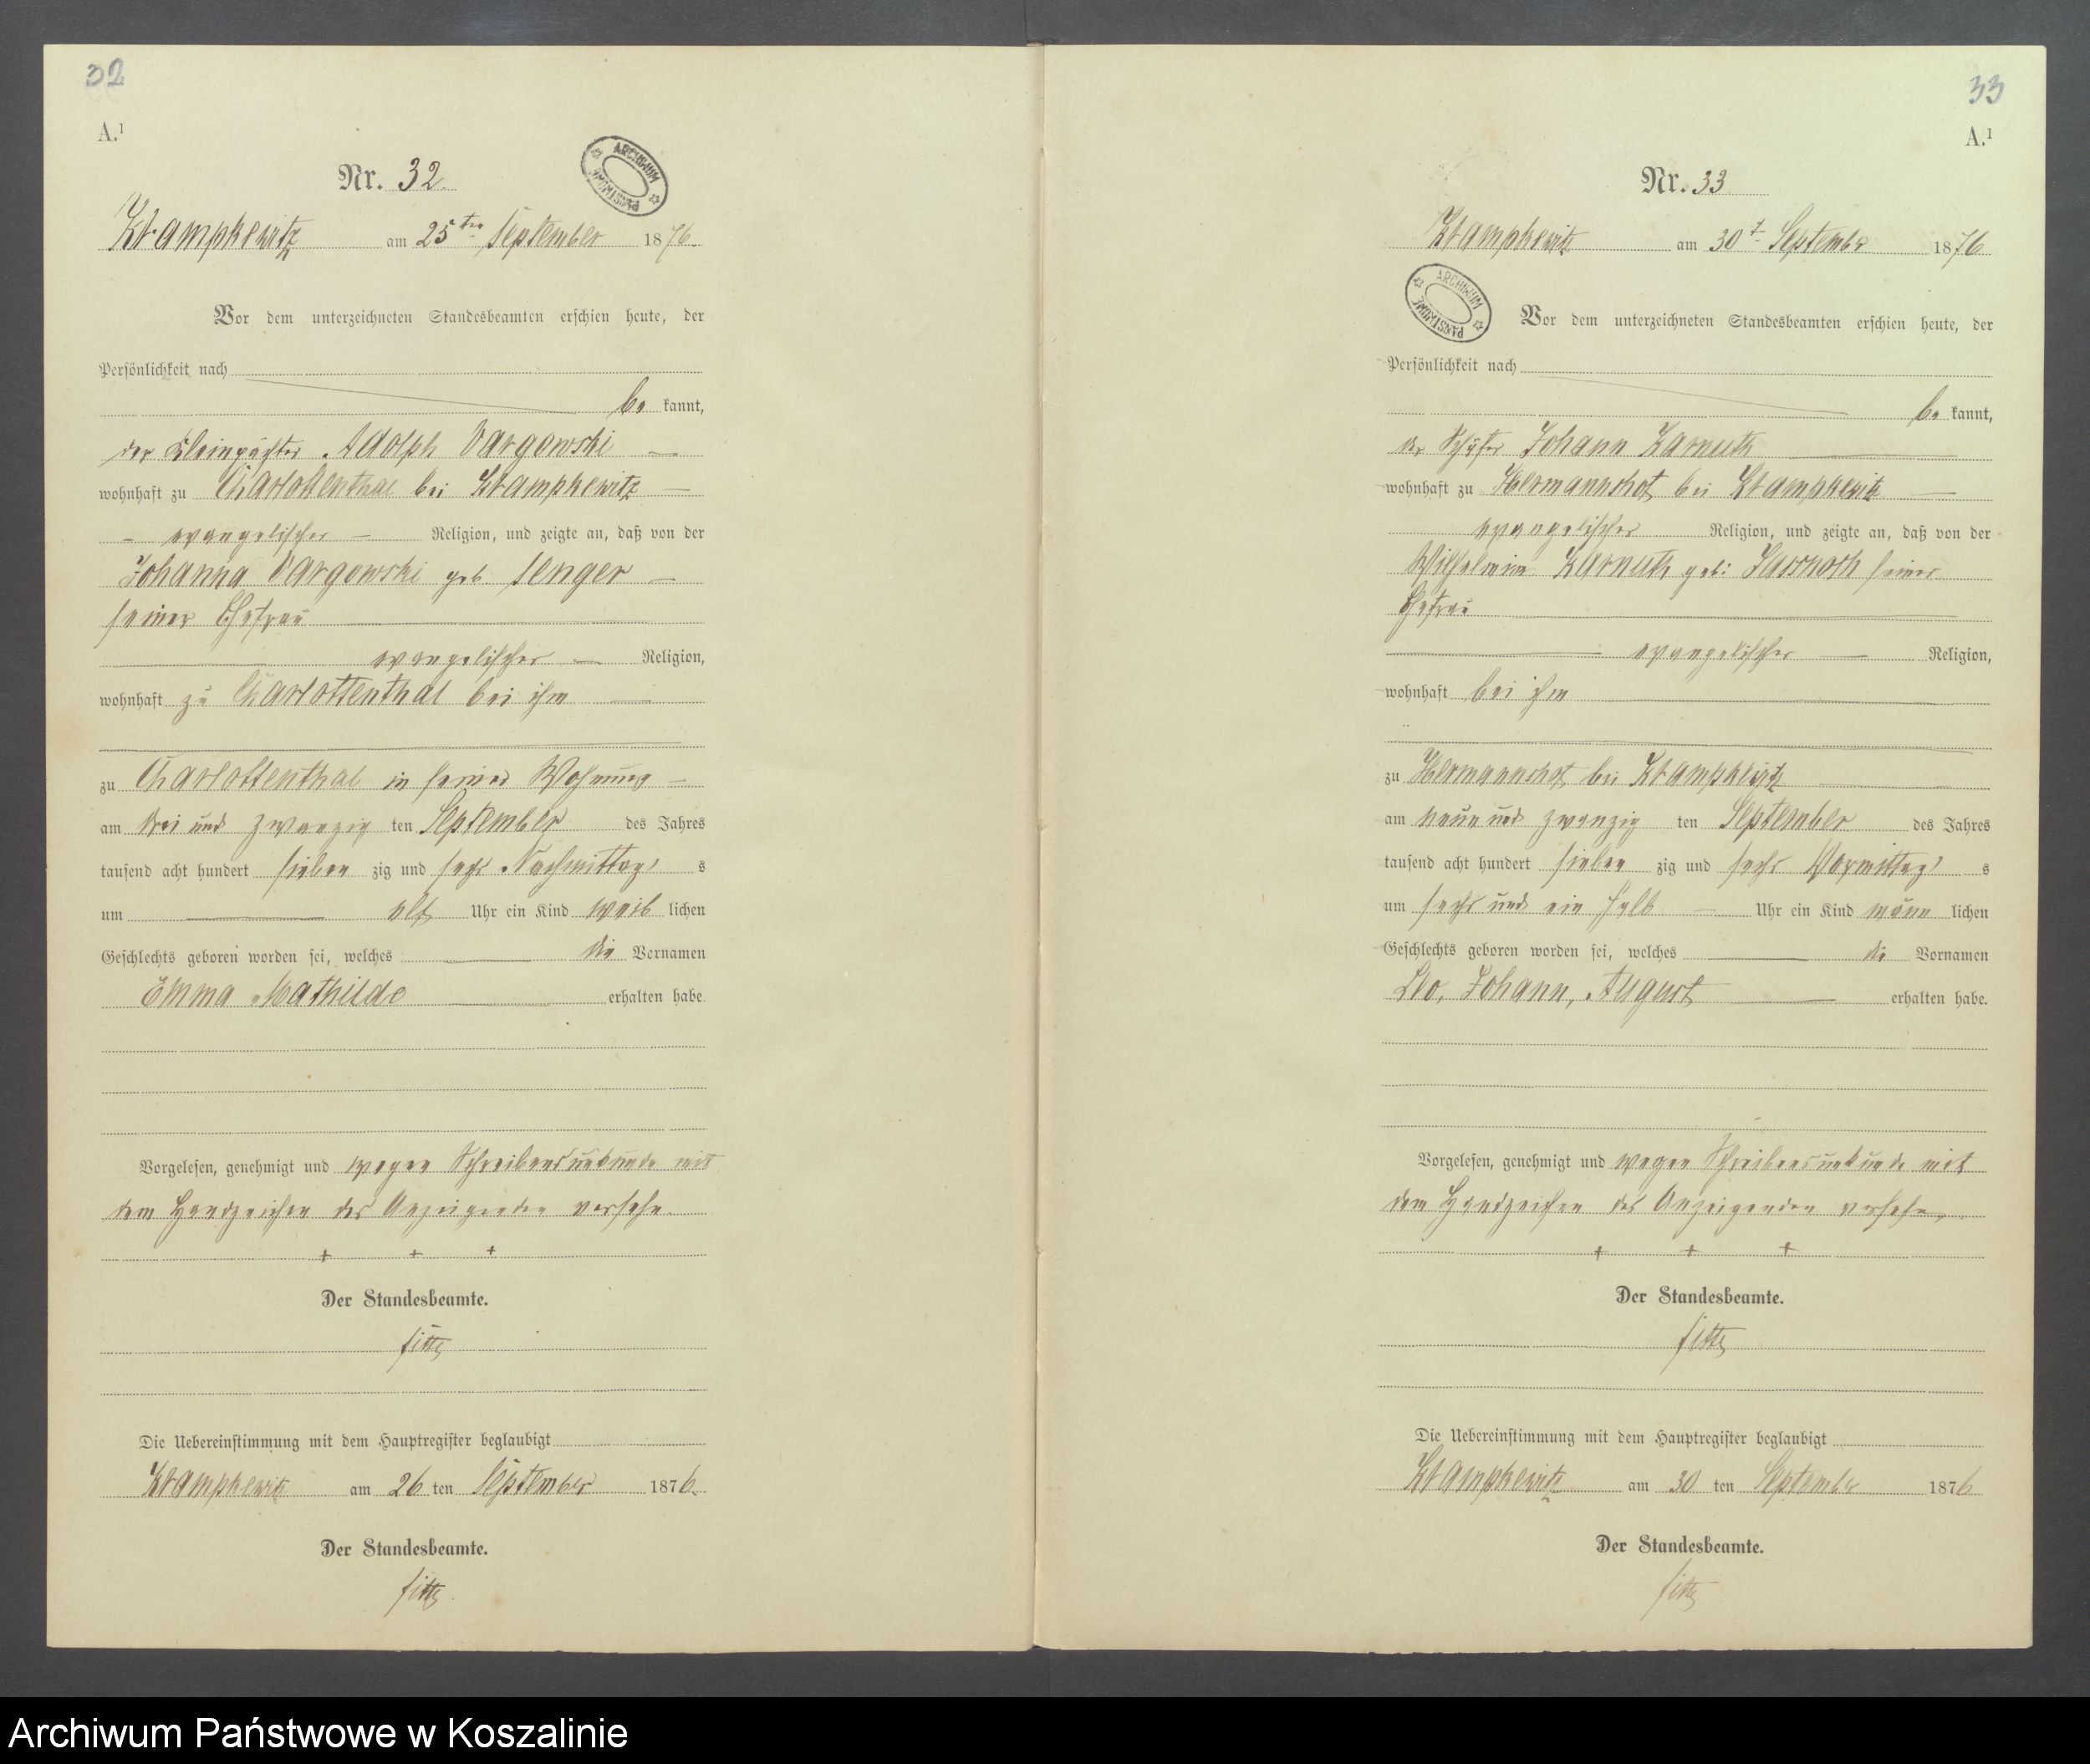 32
A.¹
Nr. 32.
ARCHIWUM PAŃSTWOWE
Krampkewitz am 25ten September 1876.
Vor dem unterzeichneten Standesbeamten erschien heute, der
Persönlichkeit nach
be kannt,
der Kleinpächter Adolph Vargowski
wohnhaft zu Charlottenthal bei Krampkewitz
evangelischer Religion, und zeigte an, daß von der
Johanna Vargowski geb. Senger
seiner Ehefrau
evangelischer Religion,
wohnhaft zu Charlottenthal bei ihm
zu Charlottenthal in seiner Wohnung
am drei und zwanzig ten September des Jahres
tausend acht hundert sieben zig und sechs Nachmittag s
um elf Uhr ein Kind weib lichen
Geschlechts geboren worden sei, welches die Vornamen
Emma Mathilde erhalten habe.
Vorgelesen, genehmigt und wegen Schreibensunkunde mit
dem Handzeichen des Anzeigenden versehn.
+ + +
Der Standesbeamte.
Die Uebereinstimmung mit dem Hauptregister beglaubigt
Krampkewitz am 26 ten September 1876.
Der Standesbeamte.
33
A.¹
Nr. 33
Krampkewitz am 30t September 1876
ARCHIWUM PAŃSTWOWE
Vor dem unterzeichneten Standesbeamten erschien heute, der
Persönlichkeit nach
be kannt,
der Schäfer Johann Karnutz
wohnhaft zu Hermannshof bei Krampkewitz
evangelischer Religion, und zeigte an, daß von der
Wilhelmine Karnutz geb: seiner
Ehefrau
evangelischer Religion,
wohnhaft bei ihm
zu Hermannshof bei Krampkewitz
am neun und zwanzig ten September des Jahres
tausend acht hundert sieben zig und sechs Vormittag s
um sechs und ein halb Uhr ein Kind männ lichen
Geschlechts geboren worden sei, welches die Vornamen
Leo, Johann, August erhalten habe.
Vorgelesen, genehmigt und wegen Schreibensunkunde mit
dem Handzeichen des Anzeigenden versehn,
+ + +
Der Standesbeamte.
Die Uebereinstimmung mit dem Hauptregister beglaubigt
Krampkewitz am 30 ten September 1876
Der Standesbeamte.
Archiwum Państwowe w Koszalinie